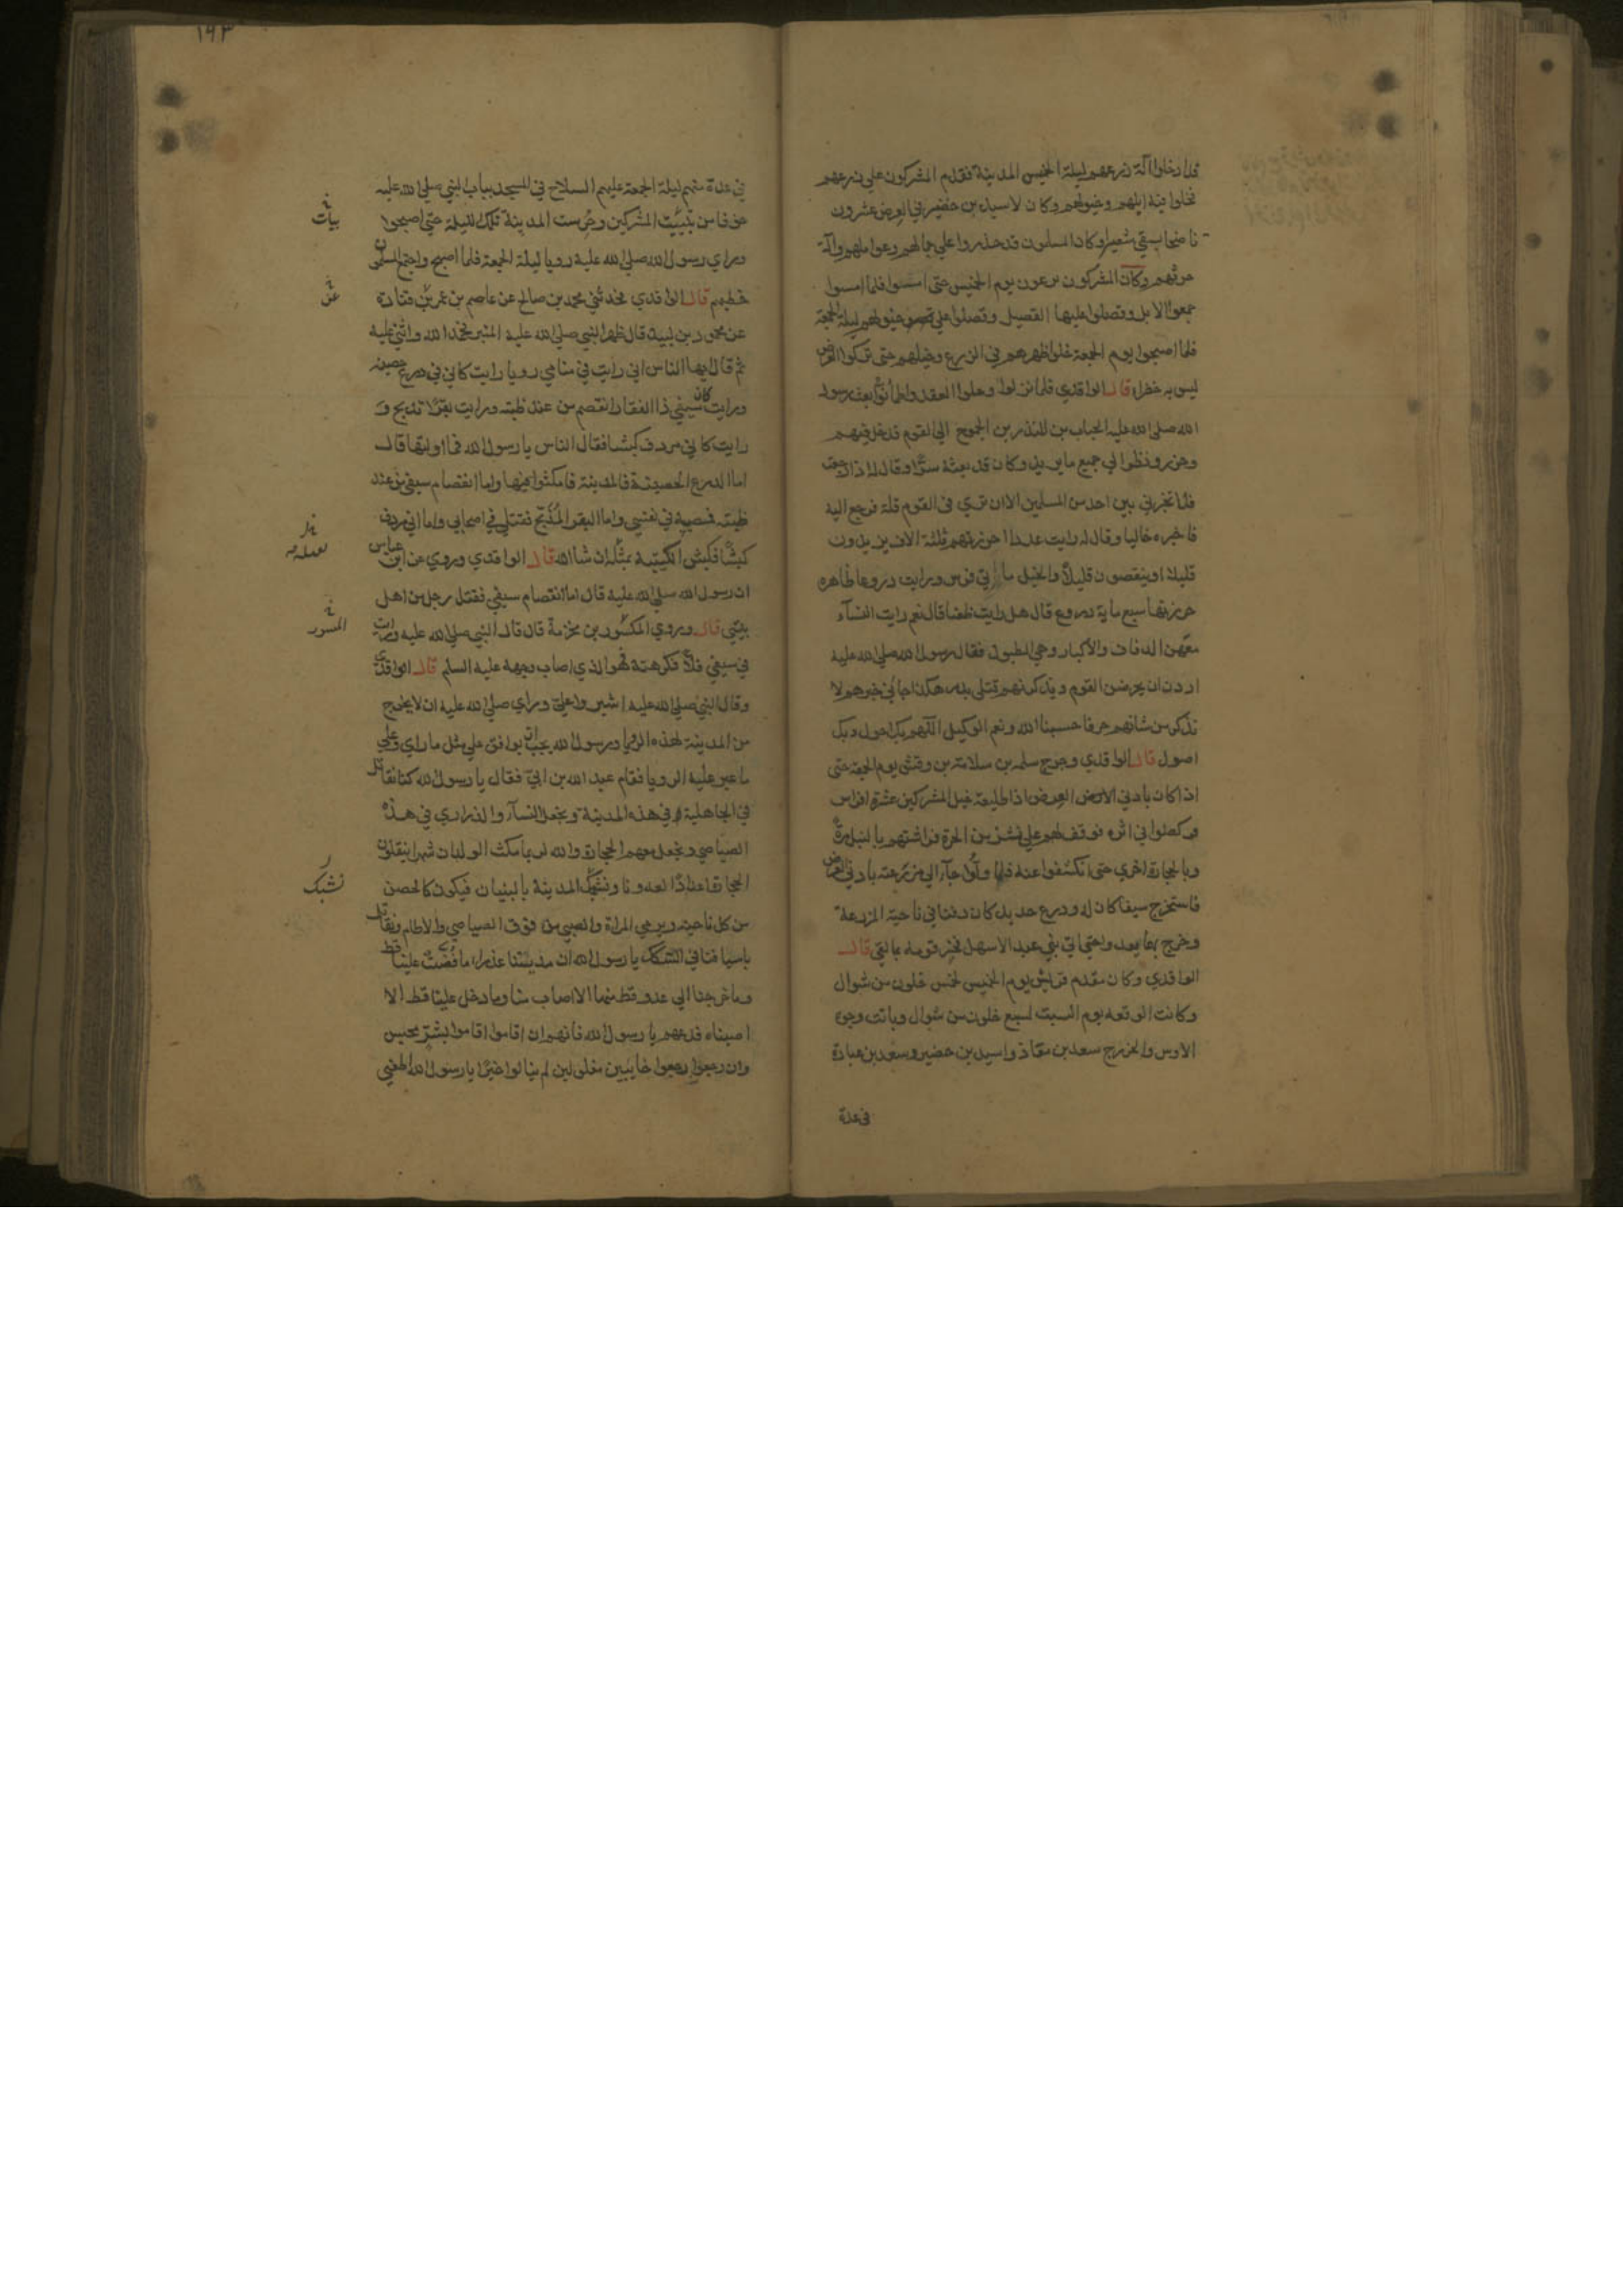 قد ادخلوا آلة زرعهم ليلة الخميس المدينة فقدم المشركون علي زرعهم
فخلوا فيه ابلهم وخيولهم وكان لاسيد بن حضير في العرض عشرون
ناضحا يسقي شعيرا وكان المسلمون قد حذروا علي جمالهم وعمالهم وآلة
حرثهم وكان المشركون يرعون يوم الخميس حتى امسوا فلما امسوا
جمعوا الابل وقصلوا عليها القصيل وقصلوا علي خيولهم ليلة الجمعة
فلما اصبحوا يوم الجمعة خلوا ظهرهم في الزرع وخيلهم حتى تركوا العرض
ليس به خضراء قال الواقدي فلما نزلوا وحلوا العقد واطمأنوا بعث رسول
الله صلى الله عليه الحباب بن المنذر بن الجموح الي القوم فدخل فيهم
وحزر ونظر الي جميع ما يريد وكان قد بعثه سرا وقال له اذا رجعت
فلا تخبرني بين احد من المسلمين الا ان تري في القوم قلة فرجع اليه
فاخبره خاليا وقال له رايت عددا حزرتهم ثلثة الاف يزيدون
قليلا او ينقصون قليلا والخيل مأتي فرس ورايت دروعا ظاهره
حزرتها سبع ماية درع قال هل رايت ظعنا قال نعم رايت النسآء
معهن الدفاف والأكبار وهي الطبول فقال رسول الله صلى الله عليه
اردن ان يحرضن القوم ويذكرنهم قتلى بدر هكذا جاني خبرهم لا
تذكر من شانهم حرفا حسبنا الله ونعم الوكيل اللهم بك احول وبك
اصول قال الواقدي وخرج سلمه بن سلامة بن وقش يوم الجمعة حتى
اذا كان بادني العرض اذا طليعة خيل المشركين عشرة افراس
فركضوا في اثره فوقف لهم علي نشز من الحرة فراشقهم بالنبل مرة
وبالحجارة اخري حتى انكشفوا عنه فلما ولوا جآء الي مزرعته بادني العرض
فاستخرج سيفا كان له ودرع حديد كان دفنا في ناحية المزرعة
وخرج بهما يعدو حتى اتى بني عبد الاسهل فخبر قومه بما لقي قال
الواقدي وكان مقدم قريش يوم الخميس لخمس خلون من شوال
وكانت الوقعه يوم السبت لسبع خلون من شوال وباتت وجوه
الاوس والخزرج سعد بن معاذ واسيد بن حضير وسعد بن عبادة
في عدة
١٩٣
في عدة منهم ليلة الجمعة عليهم السلاح في المسجد بباب النبي صلى الله عليه
خوفا من تبييت المشركين وحرست المدينة تلك الليلة حتى اصبحوا
بيات
وراي رسول الله صلى الله عليه رويا ليلة الجمعة فلما اصبح واجتمع المسلمون
خطبهم قال الواقدي فحدثني محمد بن صالح عن عاصم بن عمر بن قتادة
عن
عن محمود بن لبيد قال ظهر النبي صلى الله عليه المنبر فحمد الله واثني عليه
ثم قال ايها الناس اني رايت في منامي رويا رايت كاني في درع حصينه
ورايت كان سيفي ذا الفقار انقصم من عند ظبته ورايت بقرا تذبح و
رايت كاني مردف كبشا فقال الناس يا رسول الله فما اولتها قال
اما الدرع الحصينة فالمدينة فامكثوا فيها واما انقصام سيفي من عند
ظبته فمصيبة في نفسي واما البقر المذبح فقتلي في اصحابي واما اني مردف
كبشا فكبش الكتيبة نقتله ان شا الله قال الواقدي وروي عن ابن عباس
ان رسول الله صلى الله عليه قال اما انقصام سيفي فقتل رجل من اهل
بيتي قال وروي المسور بن مخرمة قال قال النبي صلى الله عليه ورايت
المسور
في سيفي فلا فكرهته فهو الذي اصاب وجهه عليه السلم قال الواقدي
وقال النبي صلى الله عليه اشيروا علي وراي صلى الله عليه ان لا يخرج
من المدينة لهذه الرويا ورسول الله يحب ان يوافق علي مثل ما راي وعلي
ما عبر عليه الرويا فقام عبد الله بن ابي فقال يا رسول الله كنا نقاتل
في الجاهلية في هذه المدينة ونجعل النسآء والذراري في هذه
الصياصي ونجعل معهم الحجارة والله لربما مكث الولدان شهرا ينقلون
الحجارة اعدادا لعدونا ونشبك المدينة بالبنيان فيكون كالحصن
نشبك
من كل ناحية ويرمي المراة والصبي من فوق الصياصي والاطام ونقاتل
باسيافنا في السكك يا رسول الله ان مدينتنا عذراء ما فضت علينا قط
وما خرجنا الي عدو قط منها الا اصاب منا وما دخل علينا قط الا
اصبناه فدعهم يا رسول الله فانهم ان اقاموا اقاموا بشر محبس
وان رجعوا رجعوا خايبين مغلوبين لم ينالوا خيرا يا رسول الله اطعني